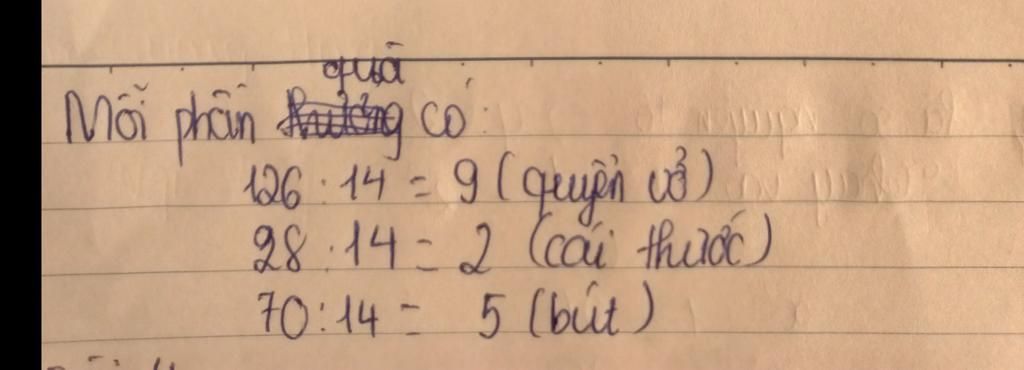 Mỗi phần quà có:
126 : 14 = 9 (quyển vở)
28 : 14 = 2 (cái thước)
70 : 14 = 5 (bút)